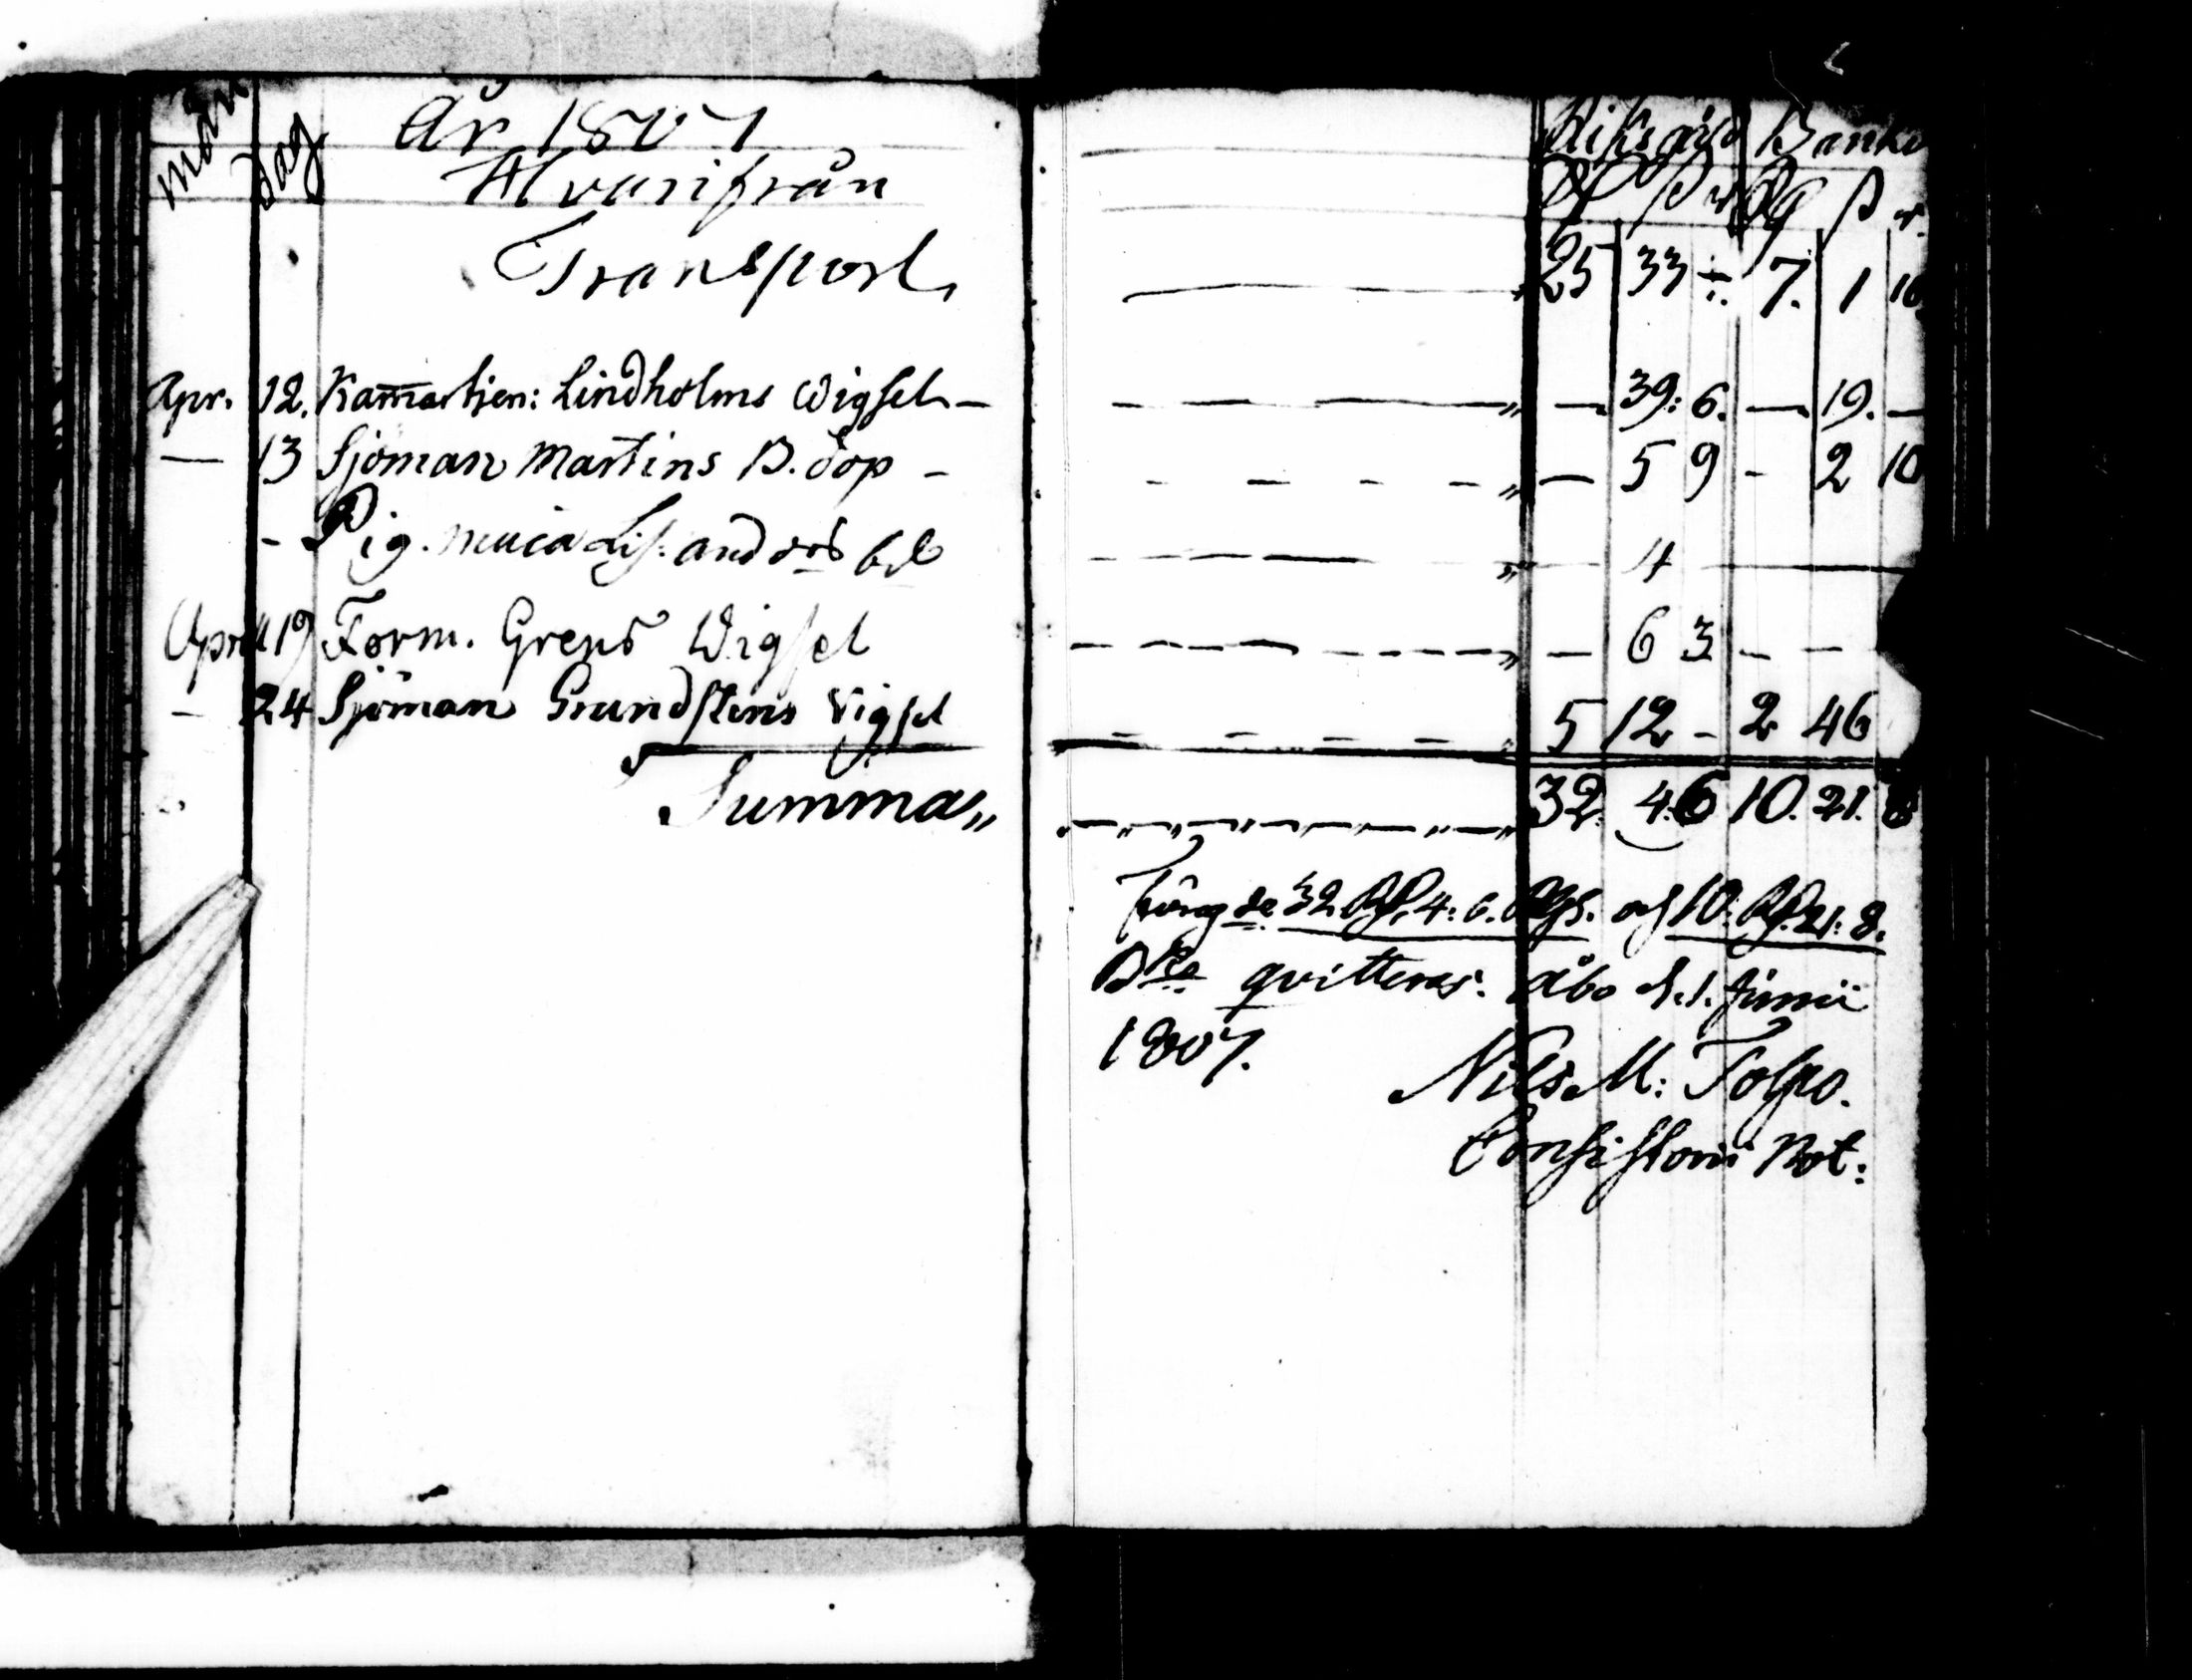 mån dag År 1807 Riksgäld Banko
Hvarifrån Rd ß r Rd ß r.
Transport 25 33 ÷ 7. 1 10
Apr. 12. Kammartjen: Lindholms Wigsel — 39: 6. — 19. —
— 13 Sjöman Martins B. dop — — 5 9 - 2 10
- Pig. Lis. and 4
April 19 Form. Grens Wigsel — 6 3 - -
— 24 Sjöman Grundstens Vigsel 5 12 - 2 46
Summa 32. 4. 6 10. 21. 8
32 Rd. 4: 6. Rgs. och 10. Rd. 21: 8.
Bko qvitteras. Åbo d. 1. Junii
1807.
Nils M: Tolpo.
Consistorii Not: